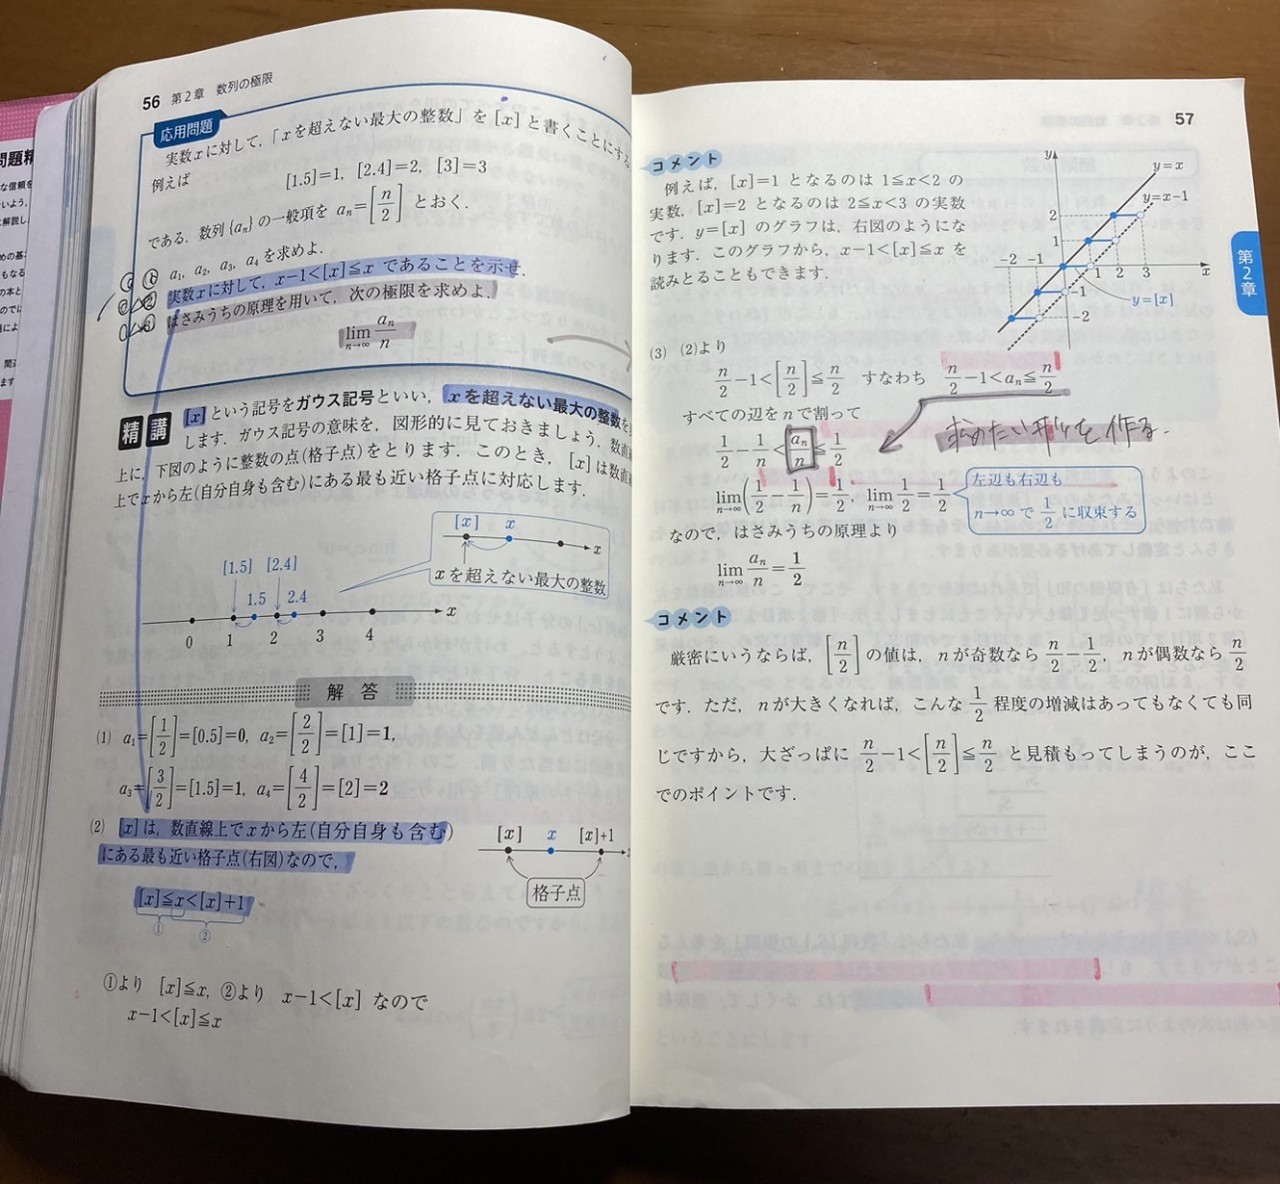 56 第2章 数列の極限
応用問題
実数xに対して,「xを超えない最大の整数」を[x]と書くことにする
例えば
[1.5]=1, [2.4]=2, [3]=3
である. 数列{aₙ}の一般項を aₙ=[n/2] とおく.
a₁, a₂, a₃, a₄を求めよ.
実数xに対して, x-1<[x]≦x であることを示せ.
はさみうちの原理を用いて, 次の極限を求めよ.
lim n→∞ aₙ/n
精講
[x]という記号をガウス記号といい, xを超えない最大の整数を
します. ガウス記号の意味を, 図形的に見ておきましょう. 数直
上に, 下図のように整数の点(格子点)をとります. このとき, [x]は数直
上でxから左(自分自身も含む)にある最も近い格子点に対応します.
[x] x
x
xを超えない最大の整数
[1.5] [2.4]
1.5 2.4
x
0 1 2 3 4
解答
(1) a₁=[1/2]=[0.5]=0, a₂=[2/2]=[1]=1,
a₃=[3/2]=[1.5]=1, a₄=[4/2]=[2]=2
(2) [x]は, 数直線上でxから左(自分自身も含む)
にある最も近い格子点(右図)なので,
[x] x [x]+1
格子点
[x]≦x<[x]+1
① ②
①より [x]≦x, ②より x-1<[x] なので
x-1<[x]≦x
問題精
57
第2章
コメント
例えば, [x]=1 となるのは 1≦x<2 の
実数, [x]=2 となるのは 2≦x<3 の実数
です. y=[x] のグラフは, 右図のようにな
ります. このグラフから, x-1<[x]≦x を
読みとることもできます.
y
y=x
y=x-1
2
1
-2 -1
1 2 3
x
-1
-2
y=[x]
(3) (2)より
n/2-1<[n/2]≦n/2 すなわち n/2-1<aₙ≦n/2
すべての辺をnで割って
求めたい形を作る.
1/2-1/n<aₙ/n≦1/2
lim n→∞(1/2-1/n)=1/2, lim n→∞ 1/2=1/2
左辺も右辺も
n→∞で1/2に収束する
なので, はさみうちの原理より
lim n→∞ aₙ/n=1/2
コメント
厳密にいうならば, [n/2] の値は, nが奇数なら n/2-1/2, nが偶数なら n/2
です. ただ, nが大きくなれば, こんな 1/2 程度の増減はあってもなくても同
じですから, 大ざっぱに n/2-1<[n/2]≦n/2 と見積もってしまうのが, ここ
でのポイントです.